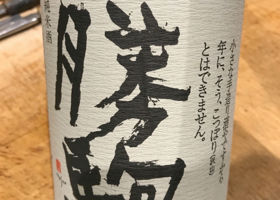 小さな手造り蔵ですから
年に、そう、こっぽり(沢山)
とはできません。
勝駒
純米酒